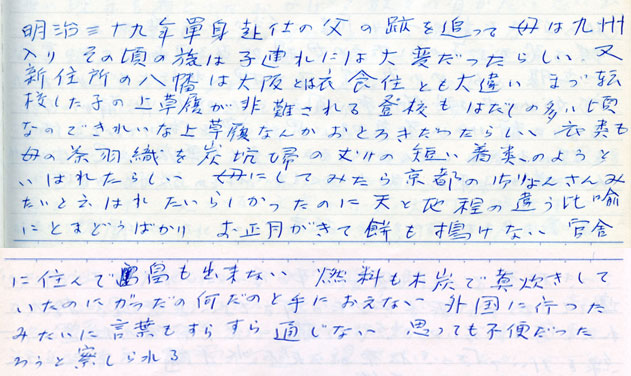 明治三十九年單身赴任の父の跡を追って母は九州
入り その頃の旅は子連れには大変だったらしい 又
新住所の八幡は大阪とは衣食住とも大違い まづ転
校した子の上草履が非難される 登校もはだしの多い頃
なのできれいな上草履なんかおどろきだったらしい 衣類も
母の茶羽織を炭坑婦の丈けの短い着類のようと
いはれたらしい 母にしてみたら京都の いちょんさんみ
たいと云はれたいらしかったのに天と地程の違う比喩
にとまどうばかり お正月がきて餅も搗けない 官舎
に住んで畠も出来ない 燃料も木炭で煮炊きして
いたのにガラだの何だのと手におえない 外国に行った
みたいに言葉もすらすら通じない 思っても不便だった
ろうと察しられる